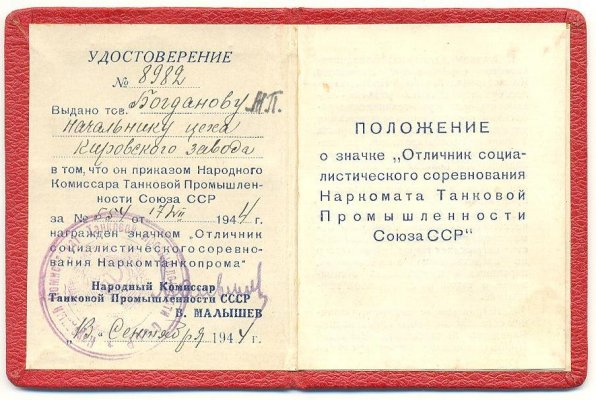 УДОСТОВЕРЕНИЕ
№ 8982
Выдано тов. Богданову М.П.
Начальнику цеха
Кировского завода
в том, что он приказом Народного
Комиссара Танковой Промышлен-
ности Союза ССР
за № 554 от 17/VII 1944 г.
награжден значком „Отличник
социалистического соревно-
вания Наркомтанкопрома"
Народный Комиссар
Танковой Промышленности СССР
В. МАЛЫШЕВ
„13" Сентября 1944 г.
ПОЛОЖЕНИЕ
о значке „Отличник социа-
листического соревнования
Наркомата Танковой
Промышленности
Союза ССР"